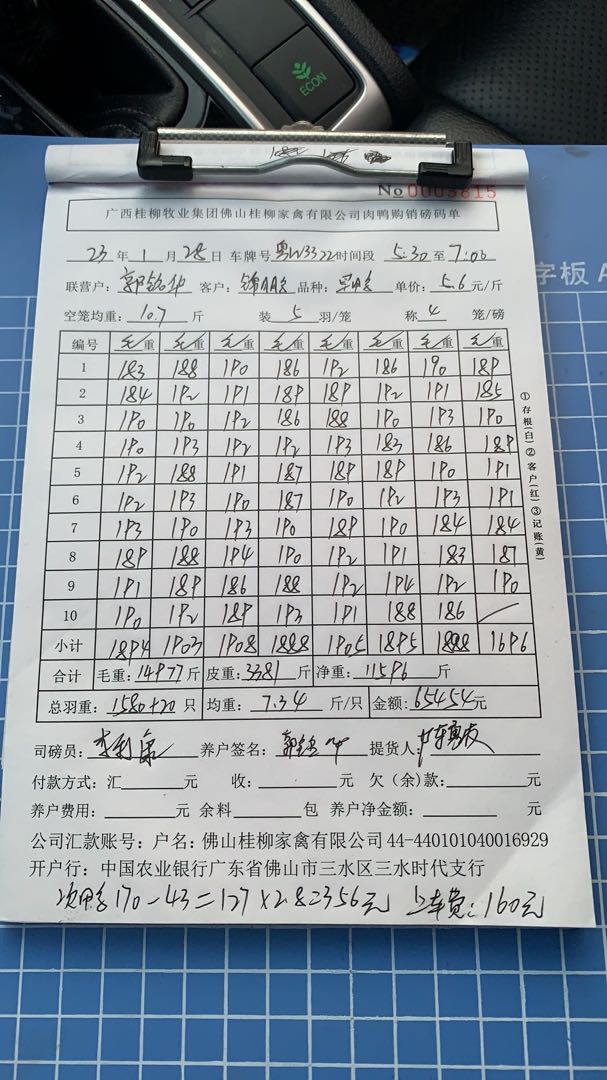 ECON
No 0003815
广西桂柳牧业集团佛山桂柳家禽有限公司肉鸭购销磅码单
23 年 1 月 28 日 车牌号 粤W3322 时间段 5:30 至 7:00
字板 A
联营户： 客户： 品种： 单价：5.6 元/斤
空笼均重：10.7 斤 装 5 羽/笼 称 4 笼/磅
编号 毛重 毛重 毛重 毛重 毛重 毛重 毛重 毛重
1 183 188 190 186 192 186 190 189
2 184 192 191 189 189 192 191 185
3 190 190 192 186 188 190 193 190
4 190 193 192 192 193 183 186 189
5 192 188 191 187 189 189 190 191
6 192 193 190 187 190 192 193 191
7 193 190 193 190 189 190 184 184
8 189 188 194 190 192 191 183 187
9 191 189 186 188 192 194 192 190
10 190 192 189 193 191 188 186
小计 1894 1903 1908 1888 1905 1895 1888 1696
合计 毛重：14977 斤 皮重：3381 斤 净重：11596 斤
总羽重：1580+20 只 均重：7.34 斤/只 金额：65454元
司磅员： 养户签名： 提货人：
付款方式：汇 元 收： 元 欠（余）款： 元
养户费用： 元 余料 包 养户净金额： 元
公司汇款账号：户名：佛山桂柳家禽有限公司 44-440101040016929
开户行：中国农业银行广东省佛山市三水区三水时代支行
次鸭170-43=127×2.8=356元 上车费：160元
①存根(白)②客户(红)③记账(黄)